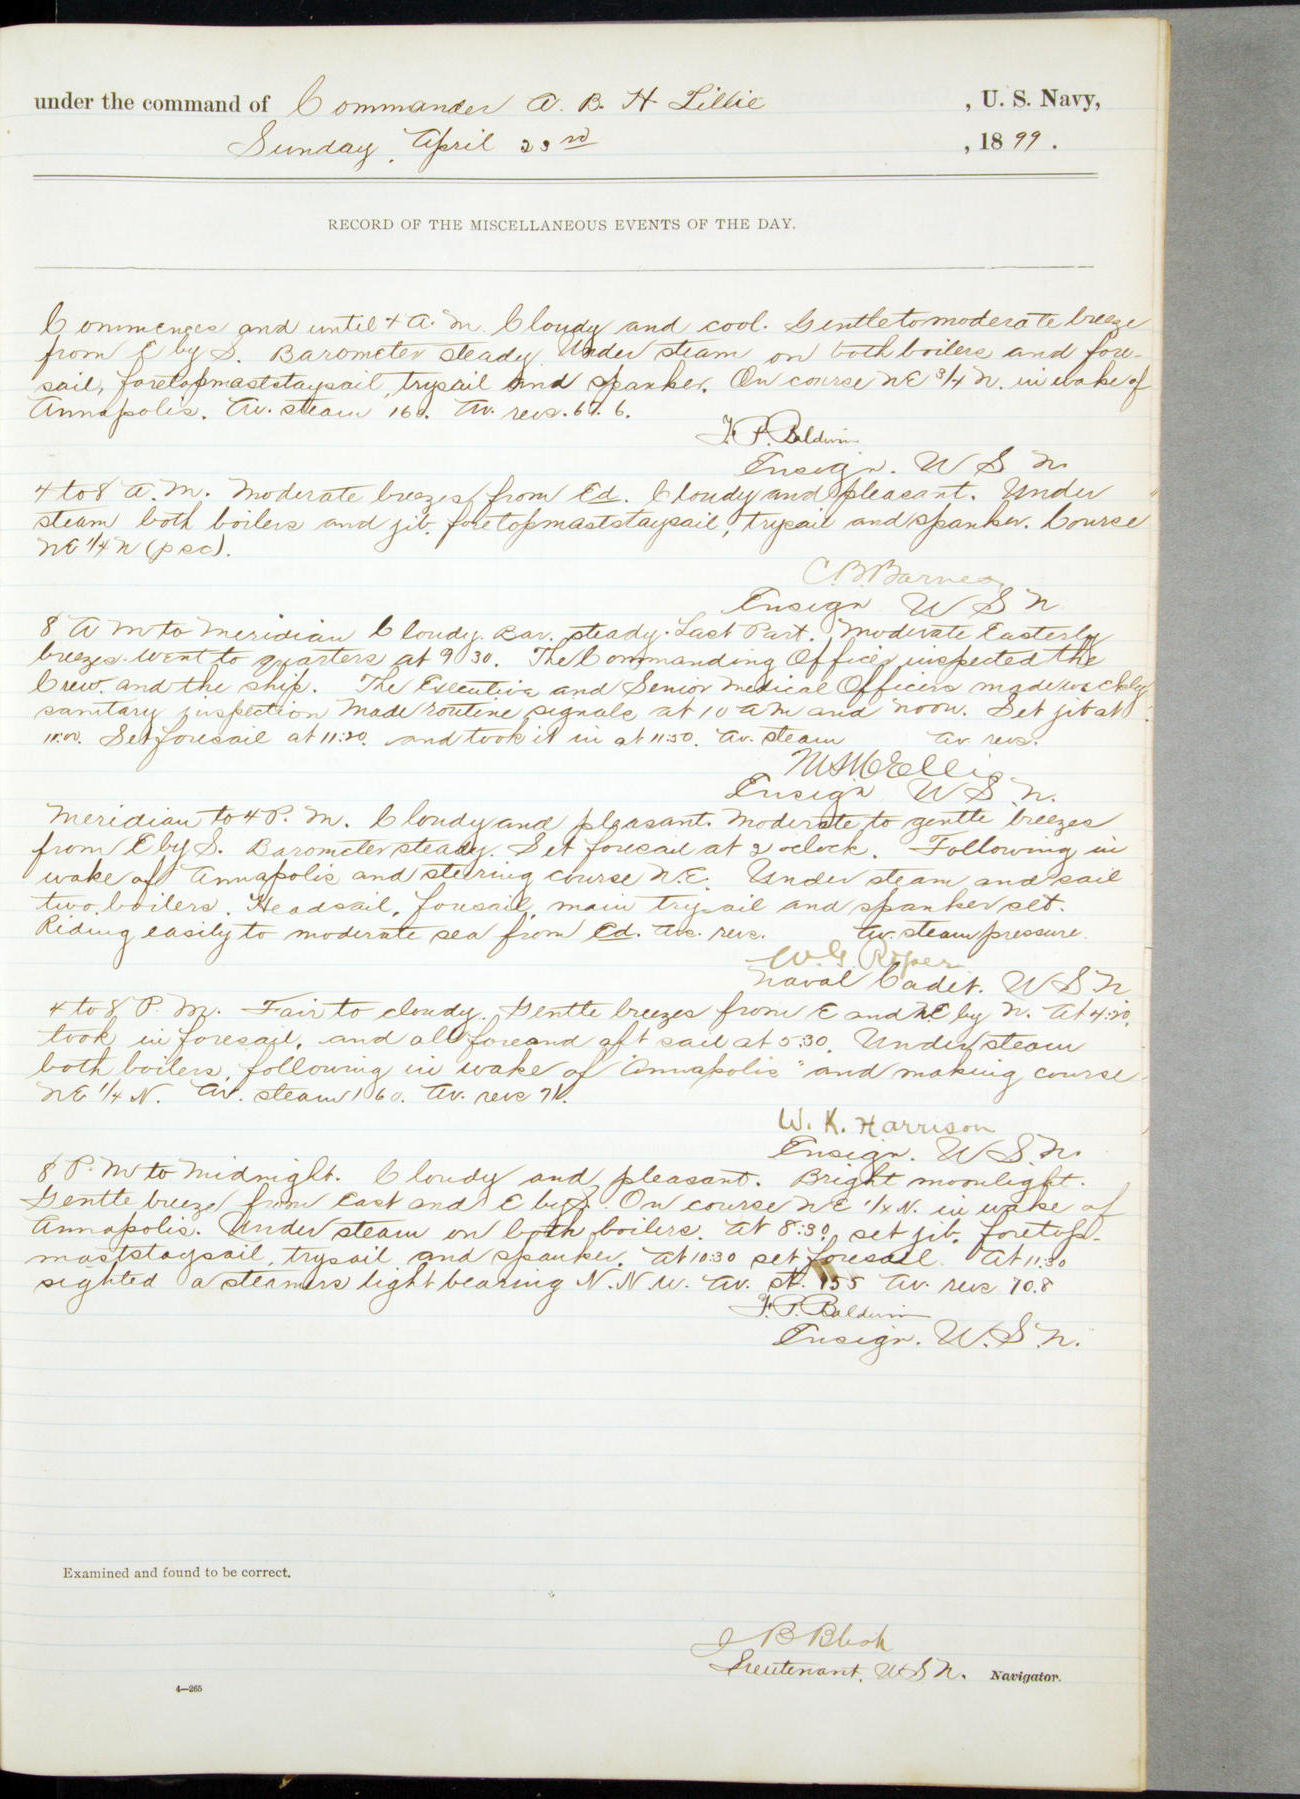 under the command of Commander A. B. H. Lillie , U. S. Navy,
Sunday, April 23rd , 1899.
RECORD OF THE MISCELLANEOUS EVENTS OF THE DAY.
Commences and until 4 A. M. Cloudy and cool. Gentle to moderate breeze
from E by S. Barometer steady Under steam on both boilers and fore-
sail, foretopmaststaysail, trysail and spanker. On course NE 3/4 N. in wake of
Annapolis. Av. steam 160. Av. revs. 67.6.
F. P. Baldwin
Ensign. U S N.
4 to 8 A. M. Moderate breezes from Ed. Cloudy and pleasant. Under
steam both boilers and jib, foretopmaststaysail, trysail and spanker. Course
NE 1/4 N (psc).
C. B. Barnes
Ensign U S N
8 A M to Meridian Cloudy. Bar. steady. Last Part. Moderate Easterly
breezes. Went to quarters at 9 30. The Commanding Officer inspected the
Crew. and the ship. The Executive and Senior Medical Officers made weekly
sanitary inspection Made routine signals at 10 a m and noon. Set jib at
Set foresail at 11:20. and took it in at 11:50. Av. steam Av revs.
Ellis
Ensign U. S. N.
Meridian to 4 P. M. Cloudy and pleasant. Moderate to gentle breezes
from E by S. Barometer steady. Set foresail at 2 oclock. Following in
wake of Annapolis and steering course N.E. Under steam and sail
two boilers. Headsail, foresail, main trysail and spanker set.
Riding easily to moderate sea from Ed. Av. revs. Av. steam pressure.
W. G. Roper
Naval Cadet. U S N
4 to 8 P. M. Fair to cloudy. Gentle breezes from E and NE by N. At 4:20,
took in foresail, and all fore and aft sail at 5:30. Under steam
both boilers, following in wake of "Annapolis" and making course
NE 1/4 N. Av. steam 160. Av. revs 71.
W. K. Harrison
Ensign. U S N.
8 P. M to Midnight. Cloudy and pleasant. Bright moonlight.
Gentle breeze from East and E by S. On course NE 1/4 N. in wake of
Annapolis. Under steam on both boilers. At 8:30, set jib, foretop-
maststaysail, trysail and spanker. At 10:30 set foresail. At 11:30
sighted a steamers light bearing N. N. W. Av. st. 155 Av. revs 70.8
F. P. Baldwin
Ensign. U. S. N.
Examined and found to be correct.
J B Blish
Lieutenant, U S N. Navigator.
4—265